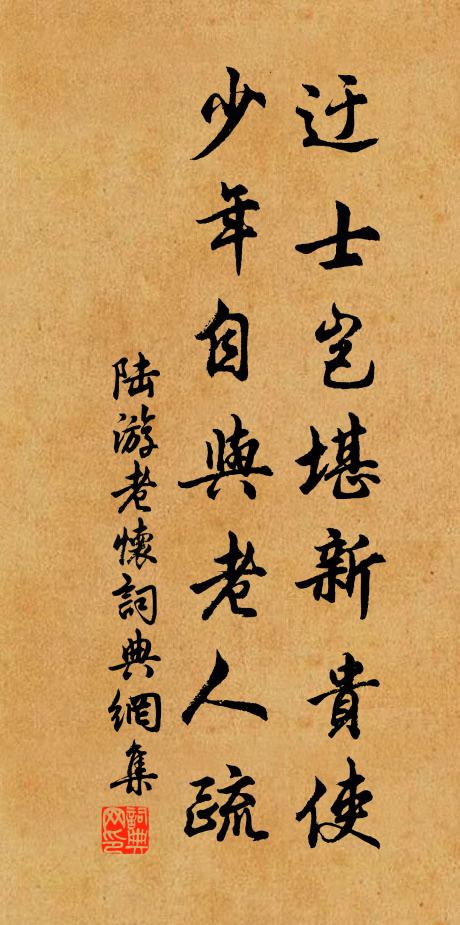 迂士豈堪新貴使
少年自與老人疏
陸游老懷詞典網集
詞典網印